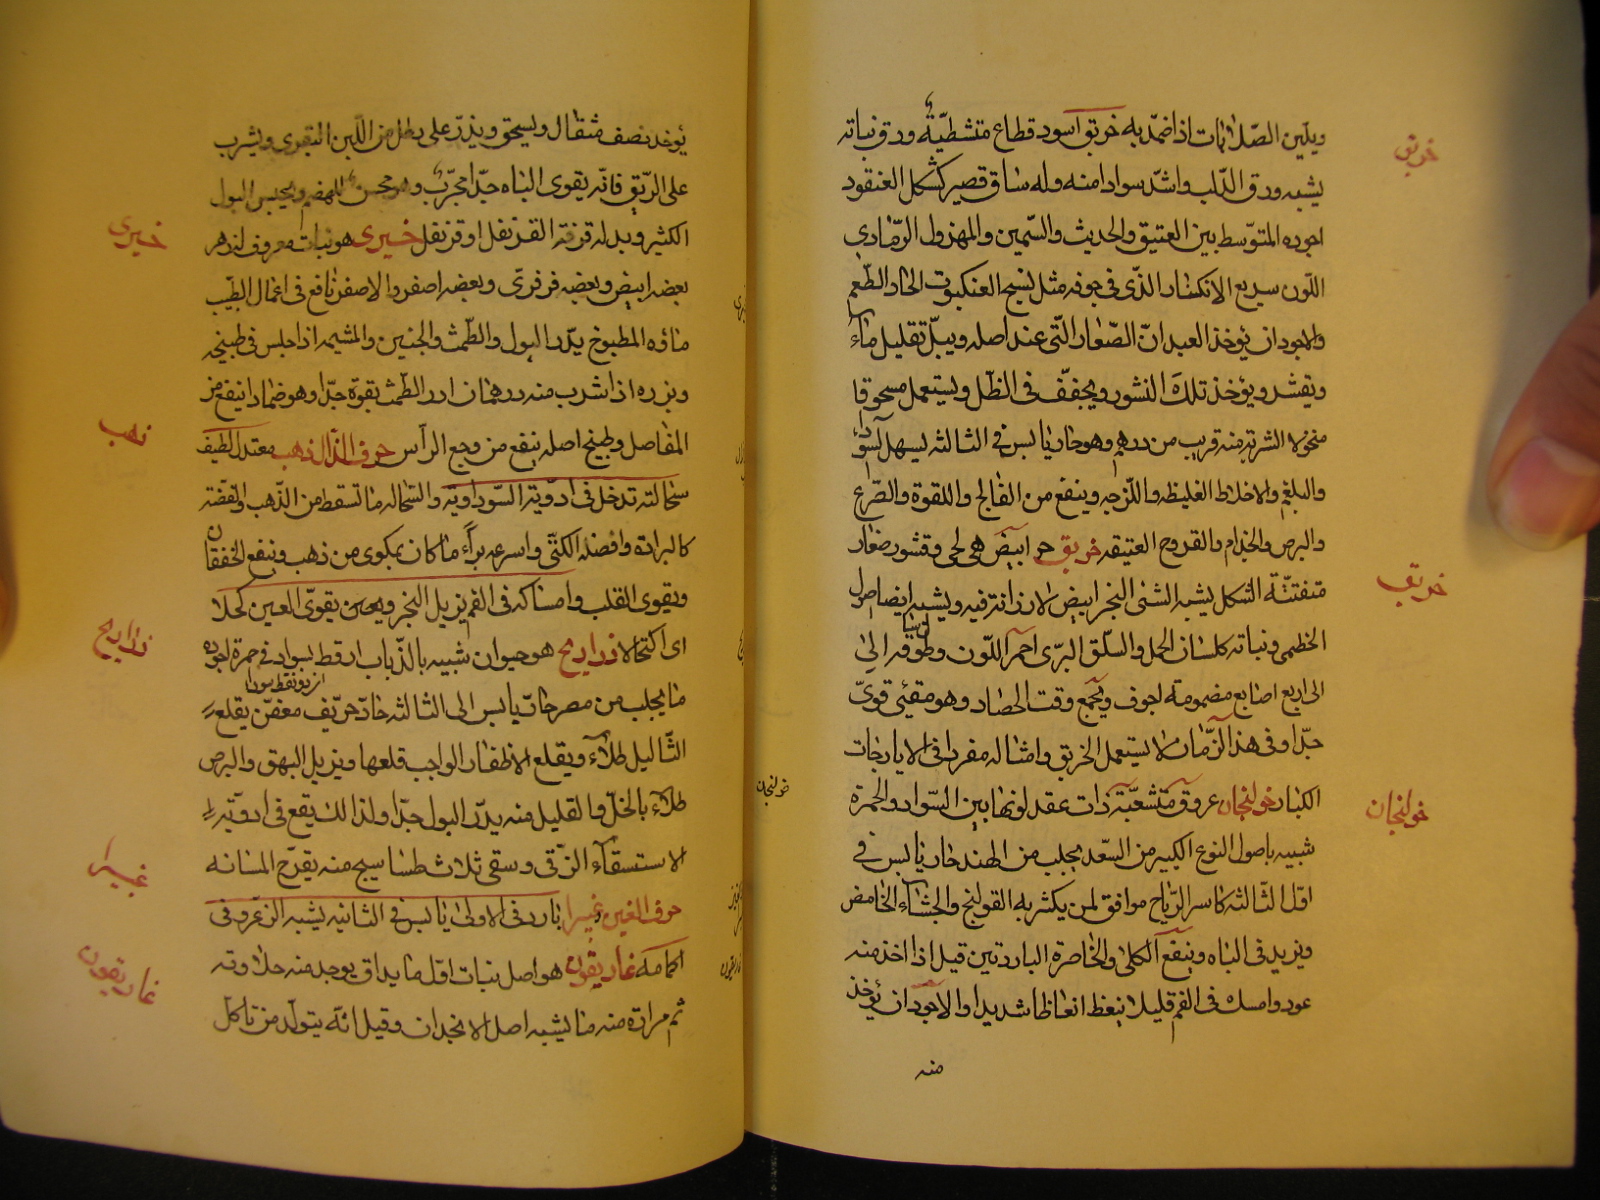 ويلين الصلابات اذا ضمد به خربق اسود قطاع متشظية ورق نباته
خربق
يشبه ورق الدلب واشد سوادا منه وله ساق قصير كشكل العنقود
اجوده المتوسط بين العتيق والحديث والسمين والمهزول الرمادى
اللون سريع الانكسار الذى فى جوفه مثل نسيج العنكبوت الحاد الطعم
والاجود ان يؤخذ العيدان الصغار التى عند اصله ويبل بقليل ماء
ويقشر ويؤخذ تلك القشور ويجفف فى الظل ويستعمل مسحوقا
منخولا الشربة منه قريب من درهم وهو حار يابس فى الثالثة يسهل السودا
والبلغم والاخلاط الغليظه واللزجه وينفع من الفالج واللقوة والصرع
والبرص والجذام والقروح العتيقه خربق ابيض هى لحى وقشور صغار
خربق
متفتتة الشكل يشبه ابيض ويشبه ايضا اصول
الخطمى ونباته كلسان الحمل والسلق البرى احمر اللون وطوله الى
الى اربع اصابع مضمومة اجوف ويجمع وقت الحصاد وهو مقيئ قوى
جدا وفى هذا الزمان لا يستعمل الخربق وامثاله مفردا فى الايارجات
الكبار خولنجان عروق متشعبة ذات عقد لونها بين السواد والحمرة
خولنجان
خولنجان
شبيه باصول النوع الكبير من السعد يجلب من الهند حار يابس فى
اول الثالثه كاسر الرياح موافق لمن يكثر به القولنج والجشاء الحامض
ويزيد فى الباه وينفع الكلى والخاصرة الباردتين قيل اذا اخذ منه
عود وامسك فى الفم قليلا ينعظ انعاظا شديدا والاجود ان يؤخذ
منه
يؤخذ نصف مثقال ويسحق ويذر على رطل من اللبن البقرى ويشرب
على الريق فانه يقوى الباه جدا مجرب للهضم ويحبس البول
الكثير وبدله قرفة القرنفل او قرنفل خيرى هو نبات معروف له زهر
خيرى
بعضه ابيض وبعضه فرفرى وبعضه اصفر والاصفر نافع فى اعمال الطب
ماؤه المطبوخ يدر البول والطمث والجنين والمشيمه اذا جلس فى طبيخه
وبزره اذا شرب منه درهمان ادر الطمث بقوة جدا وهو ضمادا ينفع من
المفاصل وطبيخ اصله ينفع من وجع الراس حرف الذال ذهب معتدل لطيف
ذهب
سحالته تدخل فى ادوية السوداوية والسحاله ما تسقط من الذهب والفضة
كالبرادة وافضله الكى واسرعه براء ما كان بمكوى من ذهب وينفع الخفقان
ويقوى القلب وامساكه فى الفم يزيل البخر ويقوى العين كحلا
اى اكتحالا ذراريح هو حيوان شبيه بالذباب ارقط بسواد فى حمرة اجوده
ذراريح
ما يجلب من مصر حاد يابس الى الثالثه حاد حريف معفن يقلع
الثاليل طلاء ويقلع الاظفار الواجب قلعها ويزيل البهق والبرص
طلاء بالخل والقليل منه يدر البول جدا ولذا لك يقع فى ادوية
الاستسقاء الزقى وسقى ثلاث طساسيج منه يقرح المثانه
حرف الغين غبيرا بارد فى الاولى يابس فى الثانيه يشبه الزعرور فى
غبيرا
اكمامه غاريقون هو اصل نبات اول ما يذاق يوجد منه حلاوته
غاريقون
ثم مرارة منه ما يشبه اصل الانجدان وقيل انه يتولد من تاكل